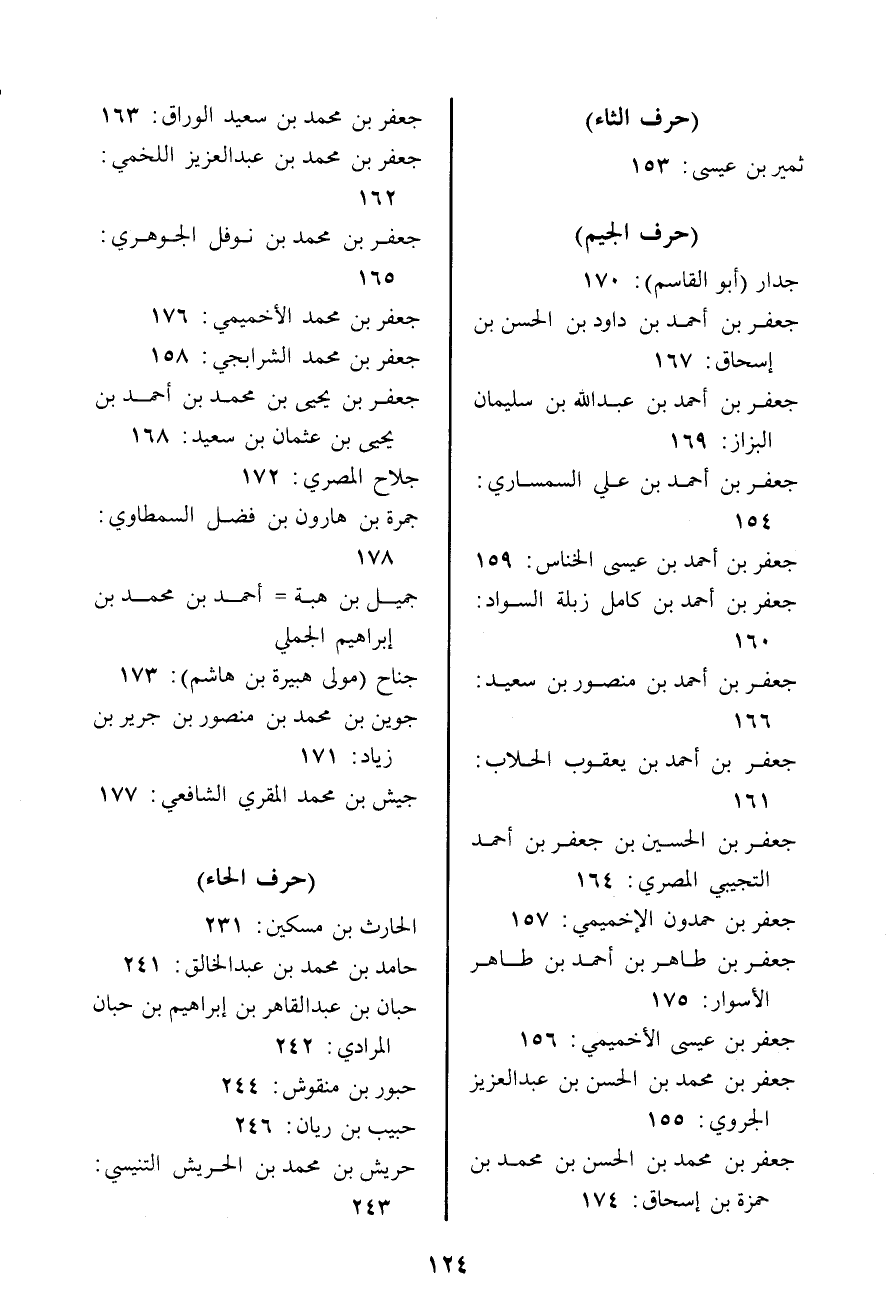 (حرف الثاء)
ثمير بن عيسى: ١٥٣
(حرف الجيم)
جدار (أبو القاسم): ١٧٠
جعفر بن أحمد بن داود بن الحسن بن
إسحاق: ١٦٧
جعفر بن أحمد بن عبدالله بن سليمان
البزاز: ١٦٩
جعفر بن أحمد بن علي السمساري:
١٥٤
جعفر بن أحمد بن عيسى الخناس: ١٥٩
جعفر بن أحمد بن كامل زبلة السواد:
١٦٠
جعفر بن أحمد بن منصور بن سعيد:
١٦٦
جعفر بن أحمد بن يعقوب الحلاب:
١٦١
جعفر بن الحسين بن جعفر بن أحمد
التجيبي المصري: ١٦٤
جعفر بن حمدون الإخميمي: ١٥٧
جعفر بن طاهر بن أحمد بن طاهر
الأسوار: ١٧٥
جعفر بن عيسى الأخميمي: ١٥٦
جعفر بن محمد بن الحسن بن عبدالعزيز
الجروي: ١٥٥
جعفر بن محمد بن الحسن بن محمد بن
حمزة بن إسحاق: ١٧٤
جعفر بن محمد بن سعيد الوراق: ١٦٣
جعفر بن محمد بن عبدالعزيز اللخمي:
١٦٢
جعفر بن محمد بن نوفل الجوهري:
١٦٥
جعفر بن محمد الأخميمي: ١٧٦
جعفر بن محمد الشرابجي: ١٥٨
جعفر بن يحيى بن محمد بن أحمد بن
يحيى بن عثمان بن سعيد: ١٦٨
جلاح المصري: ١٧٢
جمرة بن هارون بن فضل السمطاوي:
١٧٨
جميل بن هبة = أحمد بن محمد بن
إبراهيم الجملي
جناح (مولى هبيرة بن هاشم): ١٧٣
جوين بن محمد بن منصور بن جرير بن
زياد: ١٧١
جيش بن محمد المقري الشافعي: ١٧٧
(حرف الحاء)
الحارث بن مسكين: ٢٣١
حامد بن محمد بن عبدالخالق: ٢٤١
حبان بن عبدالقاهر بن إبراهيم بن حبان
المرادي: ٢٤٢
حبور بن منقوش: ٢٤٤
حبيب بن ريان: ٢٤٦
حريش بن محمد بن الحريش التنيسي:
٢٤٣
١٢٤